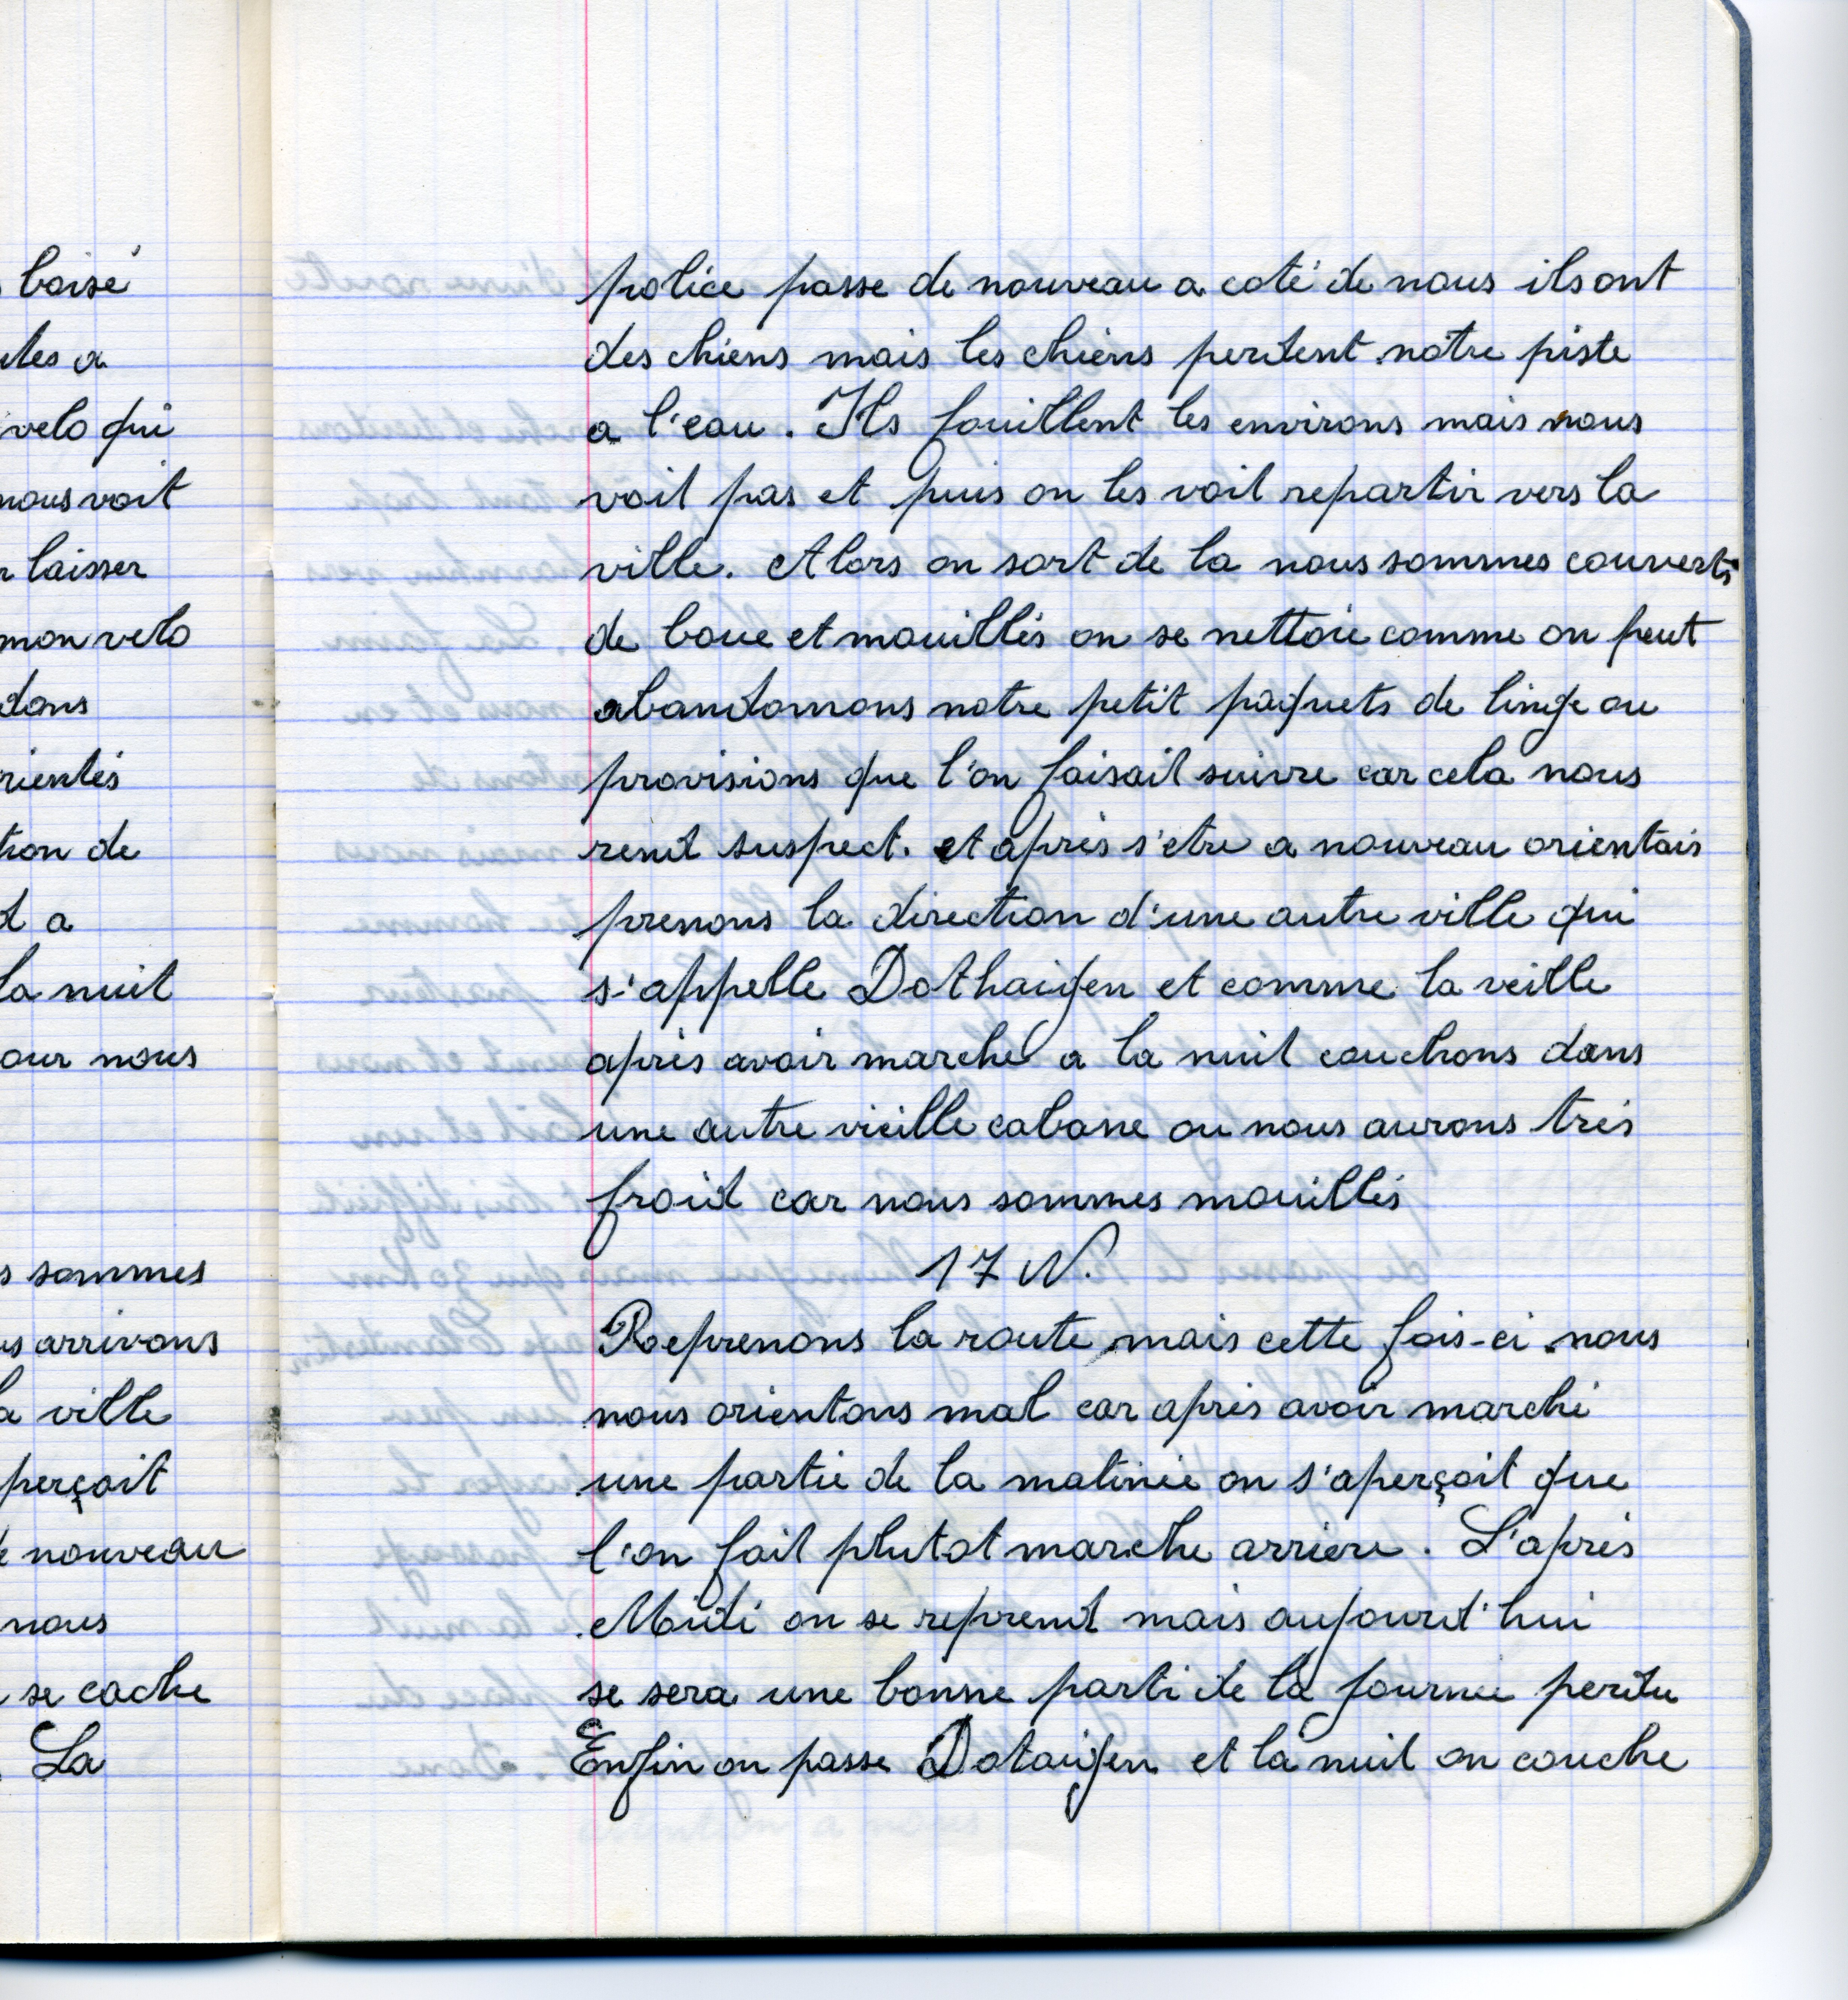 boisé
velo qui
nous voit
laisser
mon velo
dans
tion de
a
la nuit
our nous
sommes
arrivons
ville
perçoit
nouveau
nous
se cache
La
police passe de nouveau a coté de nous ils ont
des chiens mais les chiens perdent notre piste
a l'eau. Ils fouillent les environs mais nous
voit pas et puis on les voit repartir vers la
ville. Alors on sort de la nous sommes couverts
de boue et mouillés on se nettoie comme on peut
abandonnons notre petit paquets de linge ou
provisions que l'on faisait suivre car cela nous
rend suspect. et après s'etre a nouveau orientais
prenons la direction d'une autre ville qui
s'appelle Dothaigen et comme la veille
après avoir marché a la nuit couchons dans
une autre vieille cabane ou nous aurons très
froid car nous sommes mouillés
17 N.
Reprenons la route mais cette fois-ci nous
nous orientons mal car après avoir marché
une partie de la matinée on s'aperçoit que
l'on fait plutot marche arriere. L'après
Midi on se reprend mais aujourd'hui
se sera une bonne parti de la journée perdu
Enfin on passe Dotaigen et la nuit on couche